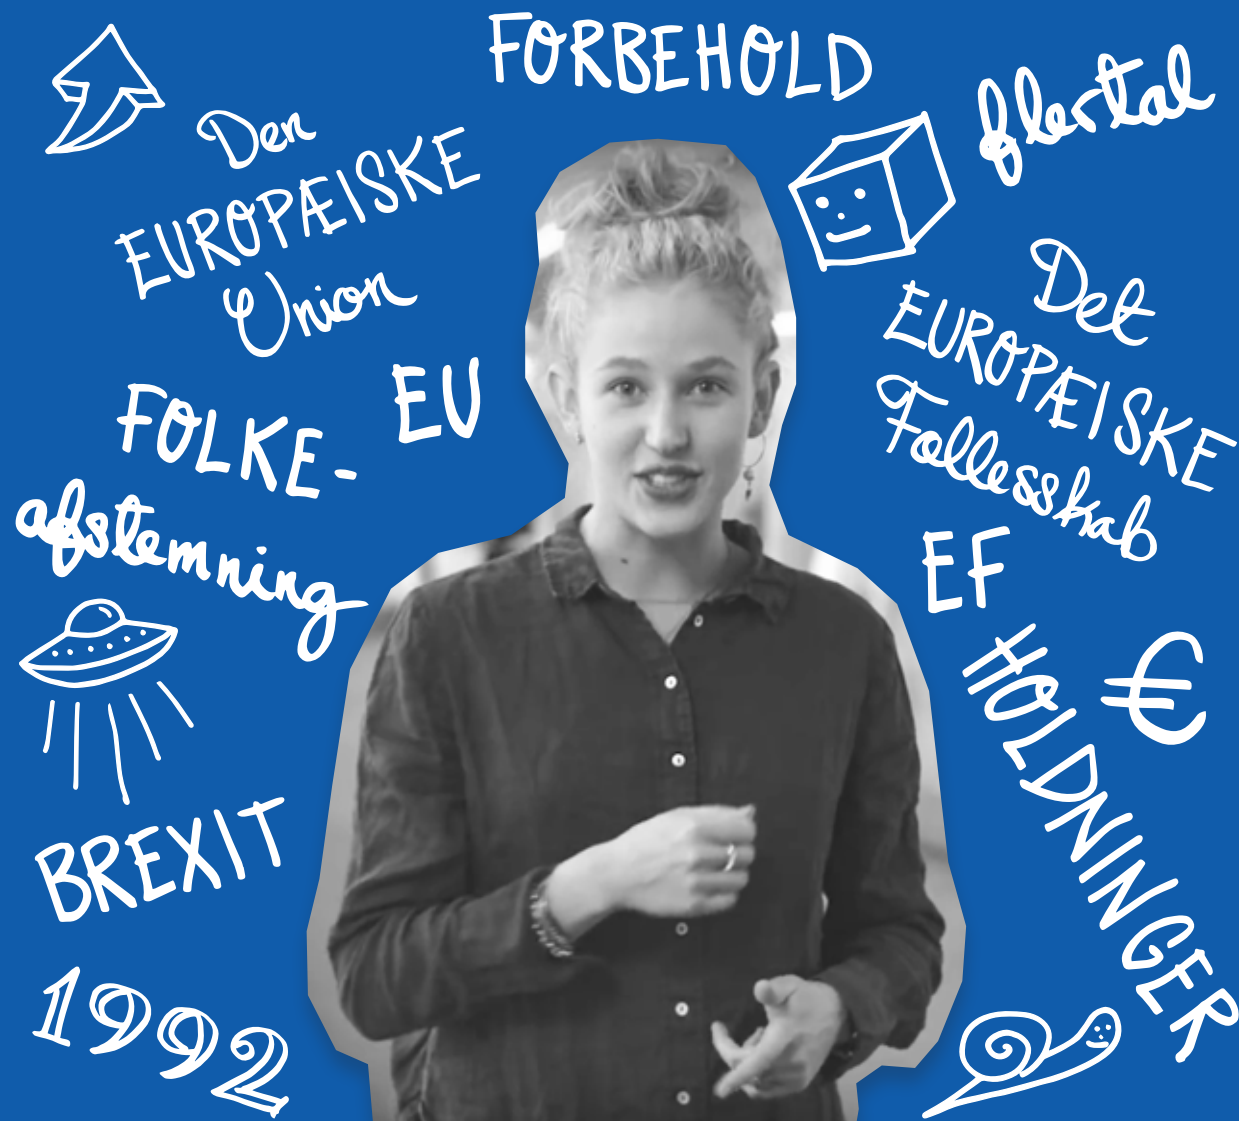 FORBEHOLD
flertal
Den
EUROPÆISKE
Union
Det
EUROPÆISKE
Fællesskab
EU
FOLKE-
afstemning
EF
HOLDNINGER
€
BREXIT
1992